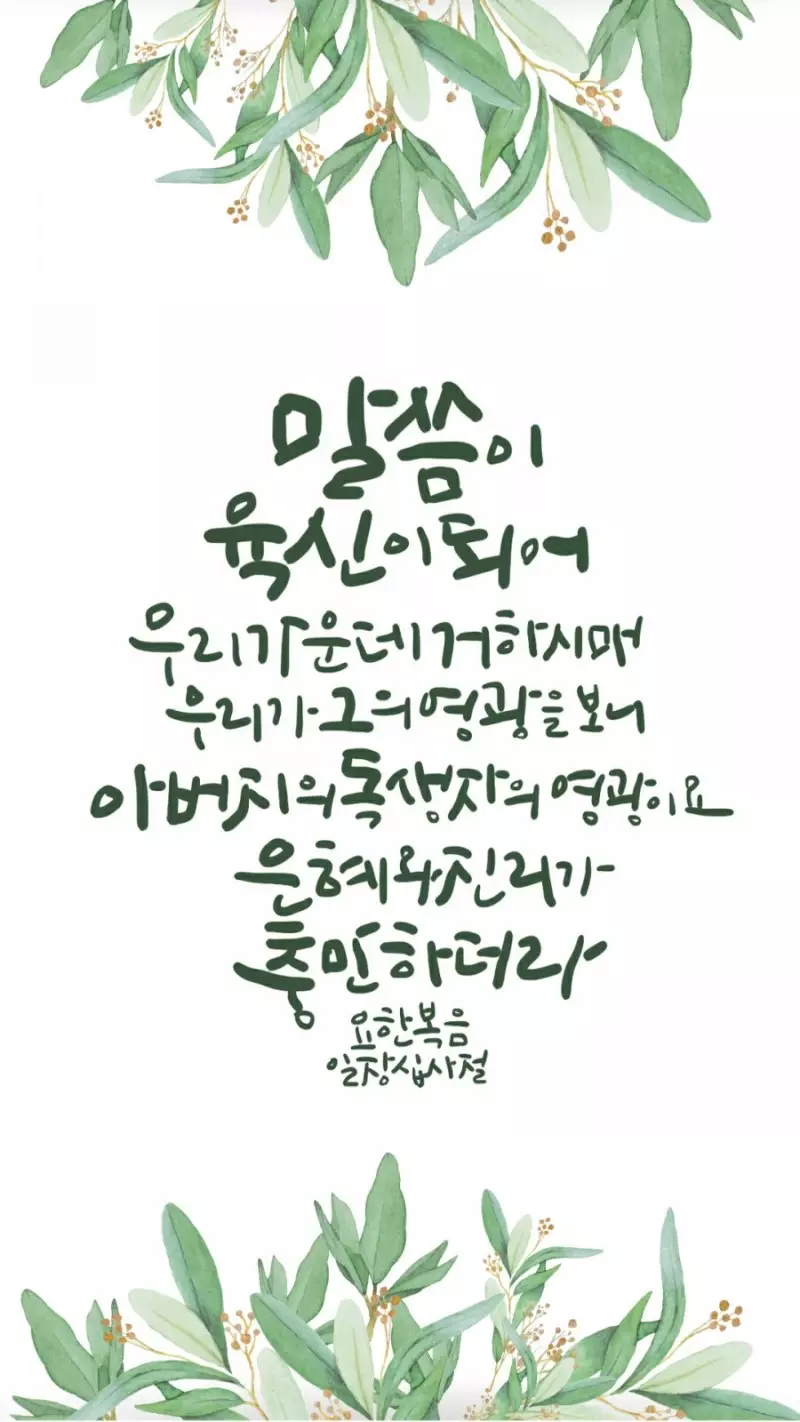 말씀이
육신이 되어
우리 가운데 거하시매
우리가 그의 영광을 보니
아버지의 독생자의 영광이요
은혜와 진리가
충만하더라
요한복음
일장 십사절